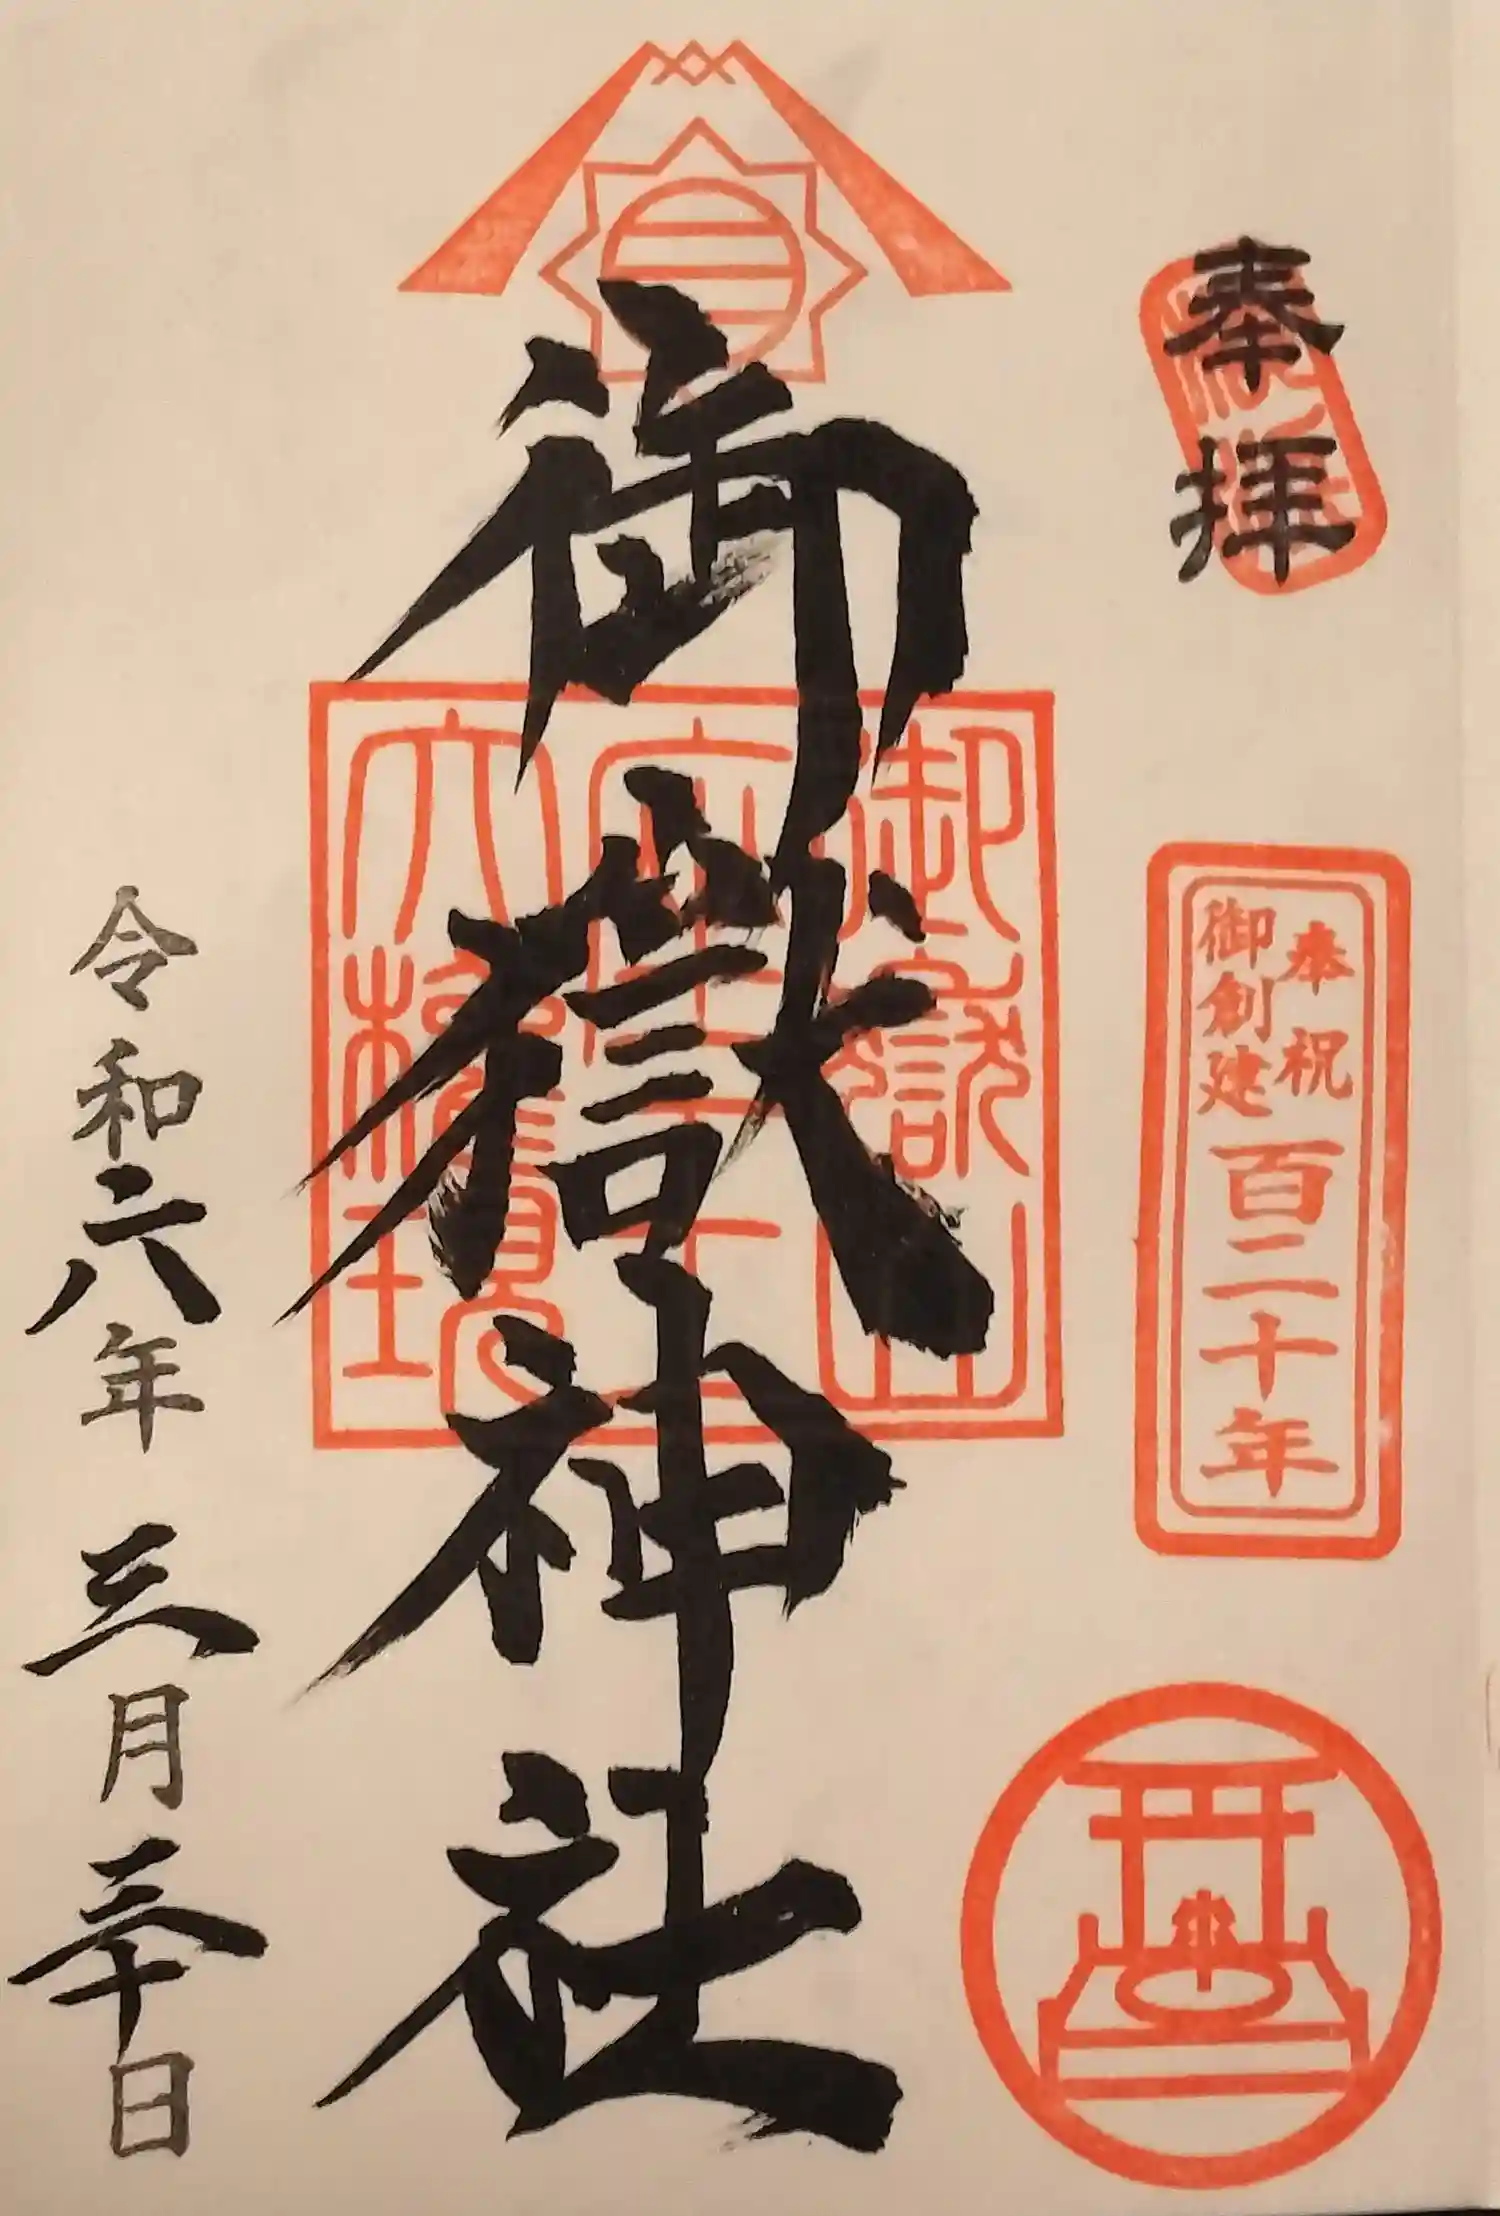 奉拝
奉祝
御創建
百二十年
御嶽神社
御嶽山
大権現
令和六年 三月三十日